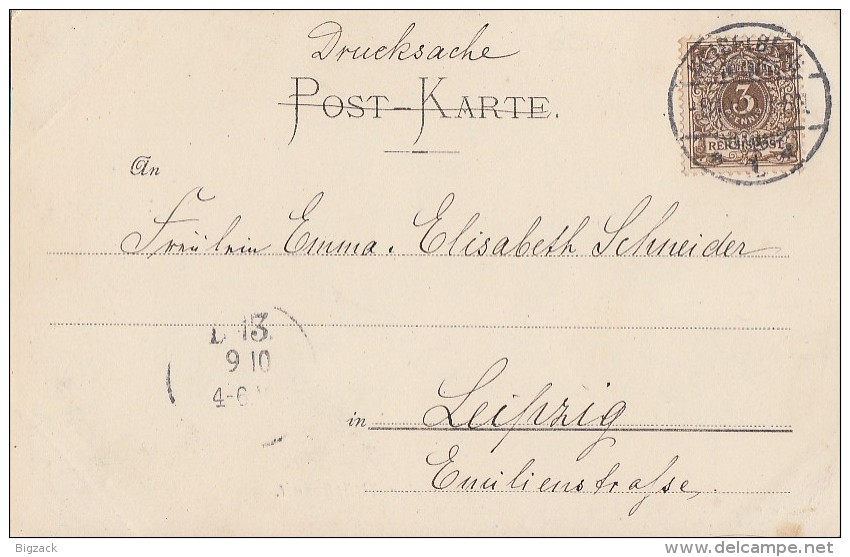 Drucksache
POST-KARTE.
3
REICHSPOST
An
Fräulein Emma. Elisabeth Schneider
13.
9 10
4-6
in Leipzig
Emilienstraſse,
Bigzack
www.delcampe.net